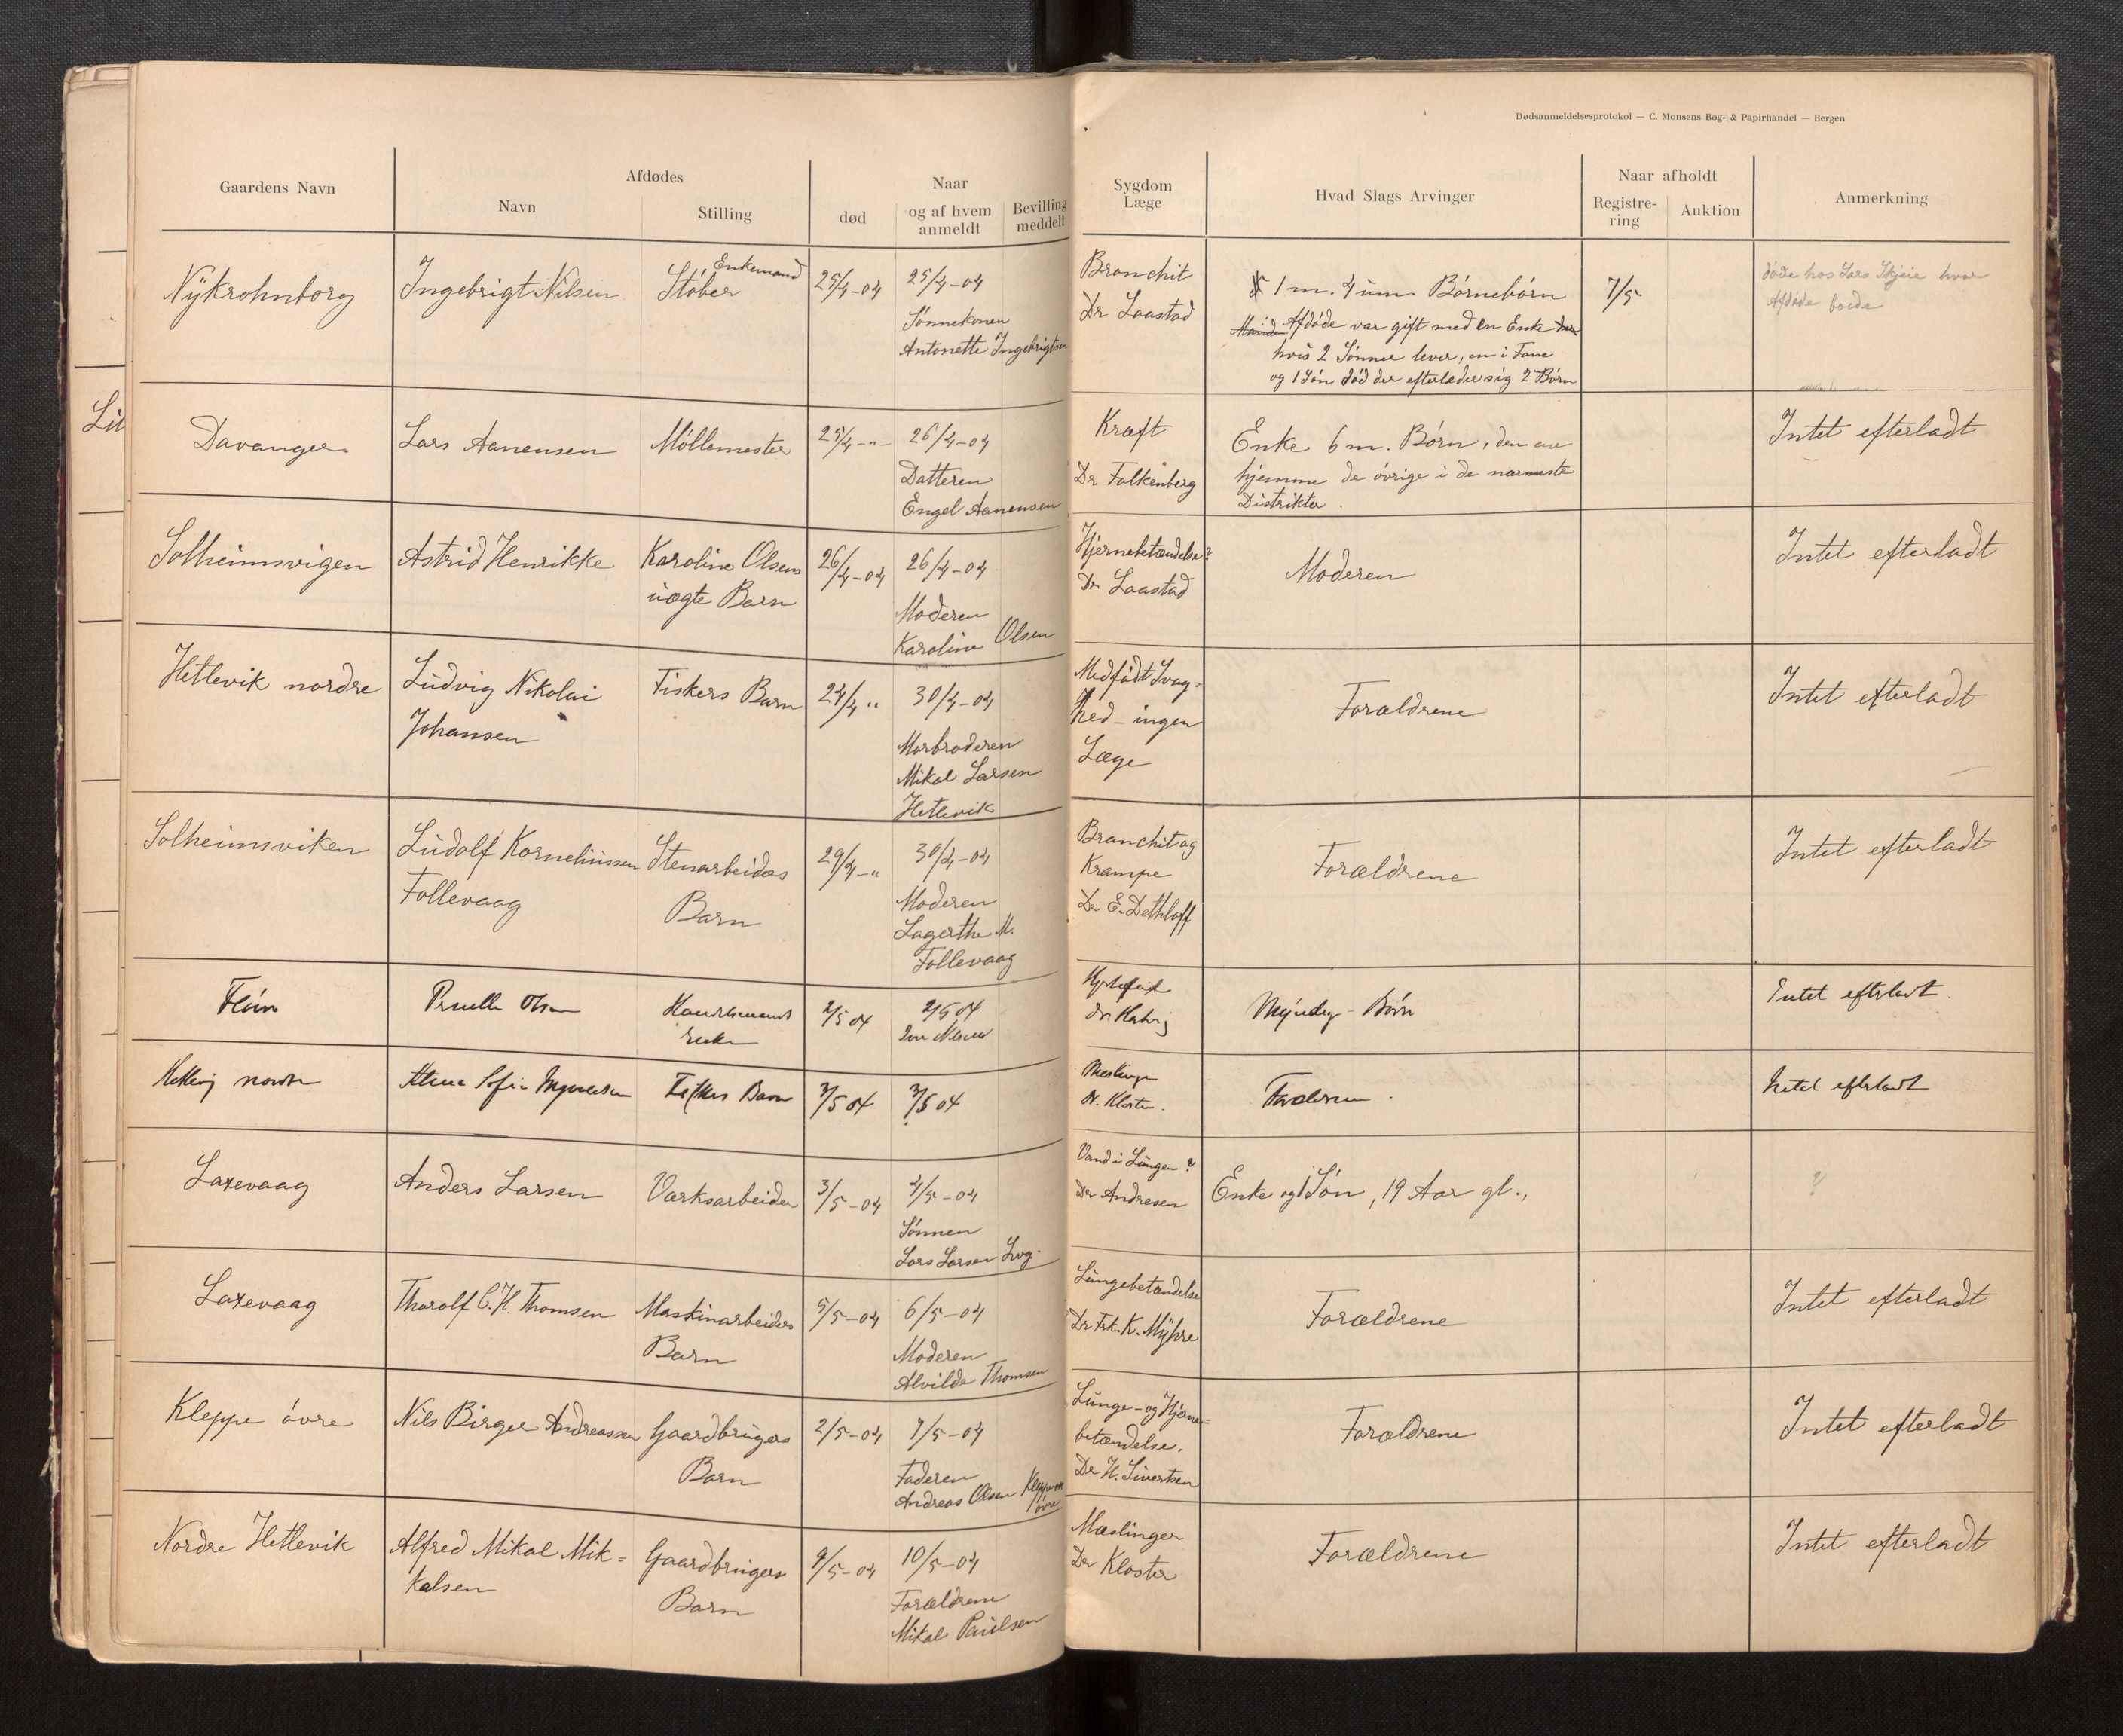 Dødsanmeldelsesprotokol — C. Monsens Bog- & Papirhandel — Bergen
Gaardens Navn
Afdødes
Navn
Stilling
død
Naar
og af hvem
anmeldt
Bevilling
meddelt
Sygdom
Læge
Hvad Slags Arvinger
Naar afholdt
Registre-
ring
Auktion
Anmerkning
Lit
Nÿkrohnborg
Ingebrigt Nilsen
Enkemand
Støber
25/4-04
25/4-04
Sønnekonen
Antonette Ingebrigtsen
Bronchit
Dr Laastad
1 m. 4 um Børnebørn
Afdøde var gift med en Enke
hvis 2 Sønner lever, en i Fane
og 1 Søn død der efterlader sig 2 Børn
7/5
døde hos Lars Skjeie hvor
Afdøde boede
Davanger
Lars Aanensen
Møllemester
25/4-"-
26/4-04
Datteren
Engel Aanensen
Kræft
Dr Falkenberg
Enke 6 m. Børn, den ene
hjemme de øvrige i de nærmeste
Distrikter.
Intet efterladt
Solheimsvigen
Astrid Henrikke
Karoline Olsens
uægte Barn
26/4-04
26/4-04
Moderen
Karoline Olsen
Hjernebetændelse?
Dr Laastad
Moderen
Intet efterladt
Hetlevik nordre
Ludvig Nikolai
Johansen
Fiskers Barn
24/4 "
30/4-04
Morbroderen
Mikal Larsen
Hetlevik
Medfødt Svag=
hed - ingen
Læge
Forældrene
Intet efterladt
Solheimsviken
Ludolf Korneliussen
Follevaag
Stenarbeides
Barn
29/4-"
30/4-04
Moderen
Lagerthe M.
Follevaag
Bronchit og
Krampe
Dr E. Dethloff
Forældrene
Intet efterladt
Olsen
2/5 04
2/5 04
Myndig - Børn
Intet efterladt.
Sofie
Fiskers Barn
3/5 04
3/5 04
Meslinger
Dr. Kloster.
Forældrene.
Intet efterladt
Laxevaag
Anders Larsen
Værksarbeider
3/5-04
4/5-04
Sønnen
Lars Larsen Lvg.
Vand i Lungen?
Dr Andresen
Enke og 1 Søn, 19 Aar gl.,
?
Laxevaag
Thorolf C. H. Thomsen
Maskinarbeiders
Barn
5/5-04
6/5-04
Moderen
Alvilde Thomsen
Lungebetændelse
Dr Frk. K. Mÿhre
Forældrene
Intet efterladt
Kleppe øvre
Nils Birger Andreassen
Gaardbrugers
Barn
2/5-04
7/5-04
Faderen
Andreas Olsen Kleppe
øvre
Lunge- og Hjerne=
betændelse.
Dr H. Sivertsen
Forældrene
Intet efterladt
Nordre Hetlevik
Alfred Mikal Mik=
kalsen
Gaardbrugers
Barn
9/5-04
10/5-04
Forældrene
Mikal Paulsen
Mæslinger
Dr Kloster
Forældrene
Intet efterladt